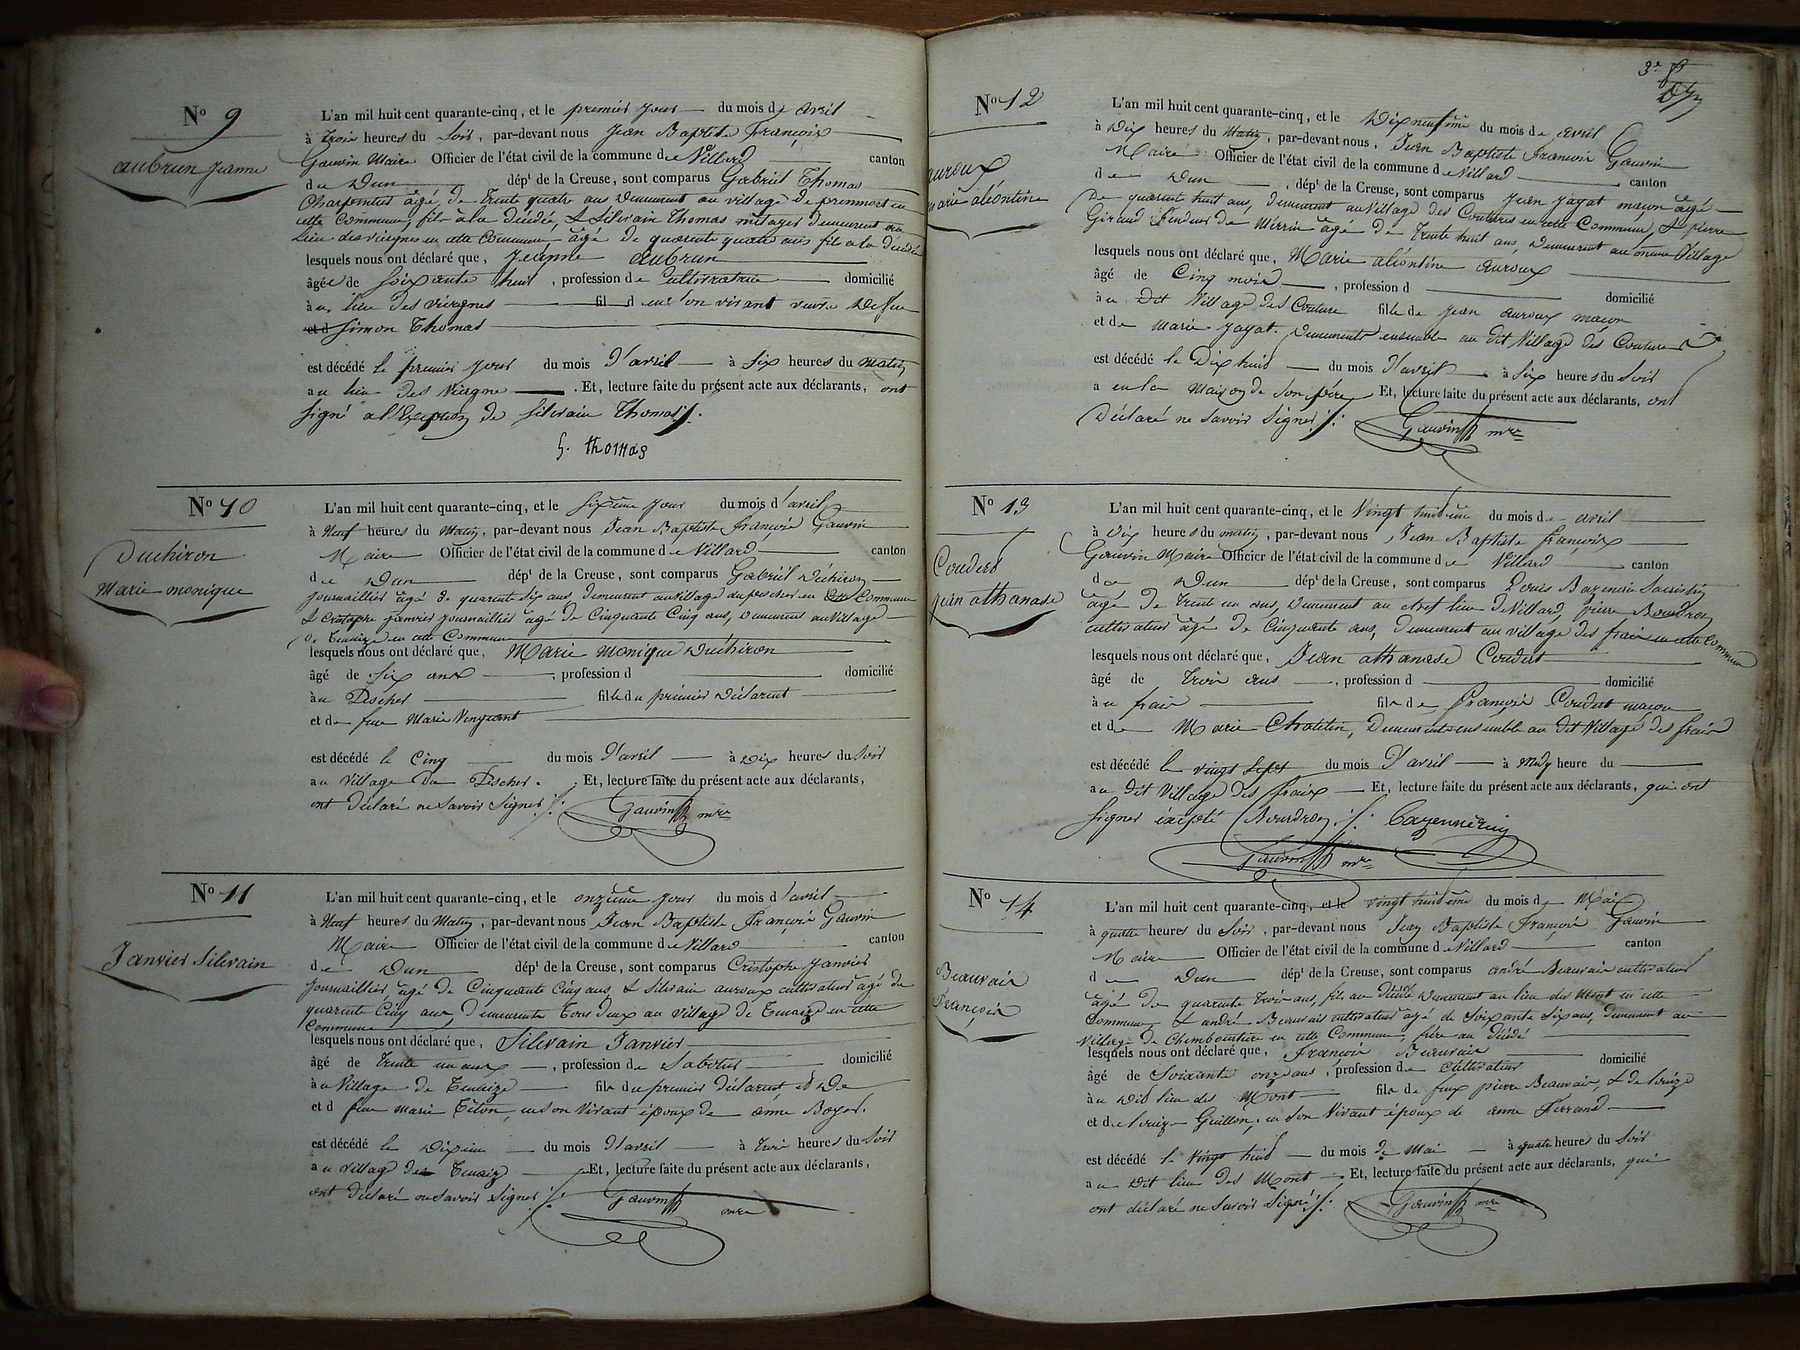 N.o 9
aubrun jeanne
L'an mil huit cent quarante-cinq, et le premier jour du mois de avril
à trois heures du Soir, par-devant nous Jean Baptiste françois
Gauvin Maire Officier de l'état civil de la commune de Villard canton
de Dun dép.t de la Creuse, sont comparus Gabriel Thomas
Charpentier agé de trente quatre ans demeurant au village de
cette Commune, fils à la décédée, & Silvain Thomas métayer demeurant au
lieu des vergnes en cette Commune âgé de quarente quatre ans fils a la décédée
lesquels nous ont déclaré que, jeanne aubrun
âgée de Soixante huit, profession de Cultivatrice domicilié
au lieu des vergnes fil d en son vivant veuve de feu
et d Simon Thomas
est décédé le premier jour du mois d'avril à Six heures du matin
au lieu des Viergne. Et, lecture faite du présent acte aux déclarants, ont
signé a l'Exception de Silvain Thomas ./.
G. thomas
N.o 10
Duchiron
Marie monique
L'an mil huit cent quarante-cinq, et le Sixème jour du mois d'avril
à Neuf heures du Matin, par-devant nous Jean Baptiste françois Gauvin
Maire Officier de l'état civil de la commune de Villard canton
de Dun dép.t de la Creuse, sont comparus Gabriel Duchiron
journaillier âgé de quarente Six ans, demeurant au village du pescher en cette Commune
& Cristophe janvier journaillier agé de Cinquante Cinq ans, demeurant au Village
de en cette Commune
lesquels nous ont déclaré que, Marie Monique Duchiron
âgé de Six ans, profession d domicilié
au Pescher fille du premier déclarent
et de feue Marie Vinguant
est décédé le Cinq du mois d'avril à Dix heures du Soir
au Village du Pescher. Et, lecture faite du présent acte aux déclarants,
ont déclaré ne Savoir Signer ./. Gauvin mre
N.o 11
Janvier Silvain
L'an mil huit cent quarante-cinq, et le onzième jour du mois d'avril
à Neuf heures du Matin, par-devant nous Jean Baptiste François Gauvin
Maire Officier de l'état civil de la commune de Villard canton
de Dun dép.t de la Creuse, sont comparus Cristophe Janvier
journaillier âgé de Cinquante Cinq ans, & Silvain auroux cultivateur âgé de
quarente Cinq ans, demeurants Tous deux au village de en cette
Commune
lesquels nous ont déclaré que, Silvain Janvier
âgé de trente un ans, profession de Sabotier domicilié
au Village de fils du premier déclarent et De
et d feue marie Tixon, en Son Vivant époux de anne Boyer.
est décédé le Dixième du mois d'avril à trois heures du Soir
au village de Et, lecture faite du présent acte aux déclarants,
ont déclaré ne Savoir Signer ./. Gauvin mre
3e
N.o 12
auroux
marie aléontine
L'an mil huit cent quarante-cinq, et le Dix neufième du mois de avril
à Dix heures du Matin, par-devant nous, Jean Baptiste François Gauvin
Maire Officier de l'état civil de la commune de Villard canton
de Dun, dép.t de la Creuse, sont comparus Jean jayat maçon agé
De quarente huit ans, demeurant au Village des Coutures en cette Commune, & pierre
Giraud fendeur de Mérrin âgé de trente huit ans, Demeurant au même Village
lesquels nous ont déclaré que, Marie aléontine auroux
âgé de Cinq mois, profession d domicilié
au Dit Village des Couture fille de jean auroux maçon
et de Marie jayat. Demeurants ensemble au dit Village des Coutures
est décédé le Dix huit du mois d'avril à Six heures du Soir
a en la Maison de Son père. Et, lecture faite du présent acte aux déclarants, ont
Déclaré ne Savoir Signer ./. Gauvin mre
N.o 13
Coudert
Jean athanase
L'an mil huit cent quarante-cinq, et le Vingt huitième du mois de avril
à Dix heures du matin, par-devant nous Jean Baptiste françois
Gauvin Maire Officier de l'état civil de la commune de Villard canton
de Dun dép.t de la Creuse, sont comparus Louis Bazenerie Sacristin
âgé de trente un ans, Demeurant au chef lieu de Villard, pierre Bourdron
cultivateur âgé de Cinquante ans, demeurant au village des frais en cette Commune
lesquels nous ont déclaré que, Jean athanase Coudert
âgé de Trois ans, profession d domicilié
au frais fils de François Coudert maçon
et de Marie Chatelin, demeurants ensemble au dit Village des frais
est décédé le vingt Sept du mois d'avril à midy heure du
au dit Village des fraix Et, lecture faite du présent acte aux déclarants, qui ont
signer excepté Bourdron ./. Bazennerie
Gauvin mre
N.o 14
Beauvais
François
L'an mil huit cent quarante-cinq, et le vingt huitième du mois de Mai
à quatre heures du Soir, par-devant nous Jean Baptiste François Gauvin
Maire Officier de l'état civil de la commune de Villard canton
de Dun dép.t de la Creuse, sont comparus andré Beauvais cultivateur
âgé de quarente Trois ans, fils au décédé Demeurant au lieu des Mont en cette
Commune, & andré Beauvais cultivateur agé de Soixante Six ans, demeurant au
Village de en cette Commune, frère au décédé
lesquels nous ont déclaré que, François Beauvais
âgé de Soixante onze ans, profession de Cultivateur domicilié
au Dit lieu des Mont fils de feux pierre Beauvais, & de louize
et de louize Guillon, en Son Vivant époux de anne Ferrand
est décédé le Vingt huit du mois de Mai à quatre heures du Soir
au Dit lieu des Mont. Et, lecture faite du présent acte aux déclarants, qui
ont déclaré ne Savoir Signé ./. Gauvin mre